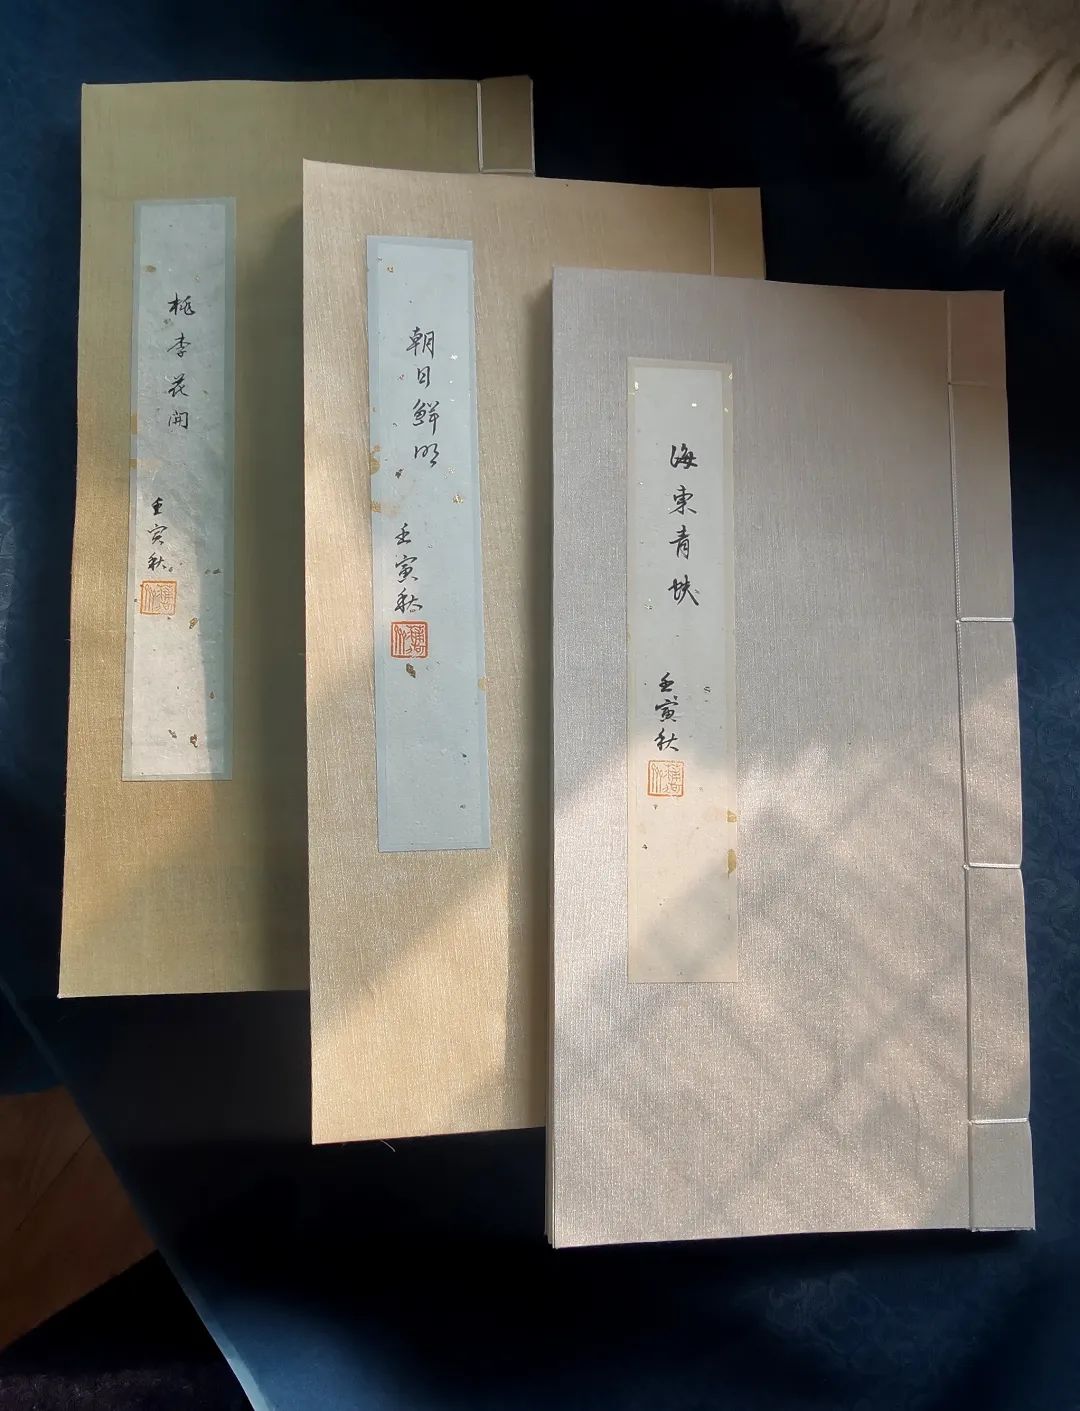 桃李花開
壬寅秋
朝日鮮明
壬寅秋
海東青
壬寅秋